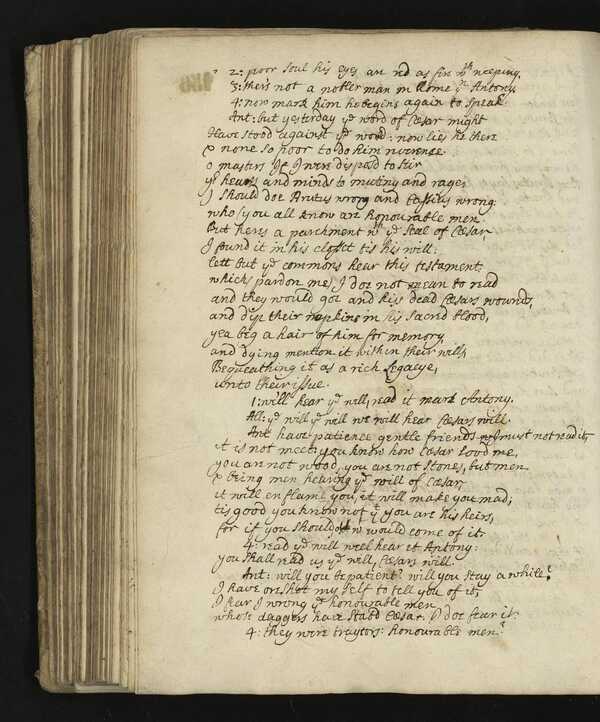 2: poor soul his eyes are red as fire wth weeping.
3: ther's not a nobler man in Rome yn Antony.
4: now mark him he begins again to speak.
Ant: but yesterday ye word of Cæsar might
Have stood against ye world: now lies he there
& none so poor to do him reverence.
o masters If I were disposd to stir
yr hearts and minds to mutiny and rage,
I should doe Brutus wrong and Cassius wrong:
who (you all know are honourable men
But heres a parchment wth ye seal of Cæsar,
I found it in his closet tis his will:
lett but ye commons hear this testament
which (pardon me) I doe not mean to read
and they would goe and kiss dead Cæsars wounds,
and dip their napkins in his sacred blood,
yea beg a hair of him for memory,
and dying mention it within their wills,
Bequeathing it as a rich Legacye,
unto their issue.
1: will hear ye will, read it mark Antony.
All: ye will ye will we will hear Cæsars will.
Ant: have patience gentle friends I must not read it,
it is not meet you know how Cæsar lovd me,
you are not wood, you are not stones, but men
& being men hearing ye will of Cæsar,
it will enflame you, it will make you mad;
tis good you know not yt you are his heirs,
for if you should w would come of it.
4: read ye will weel hear it Antony:
you shall read us ye will, Cæsars will.
Ant: will you be patient? will you stay a while?
I have oreshot my self to tell you of it,
I fear I wrong ye honourable men
whose daggers have stabd Cæsar. I doe fear it.
4: they were traytors: honourable men?